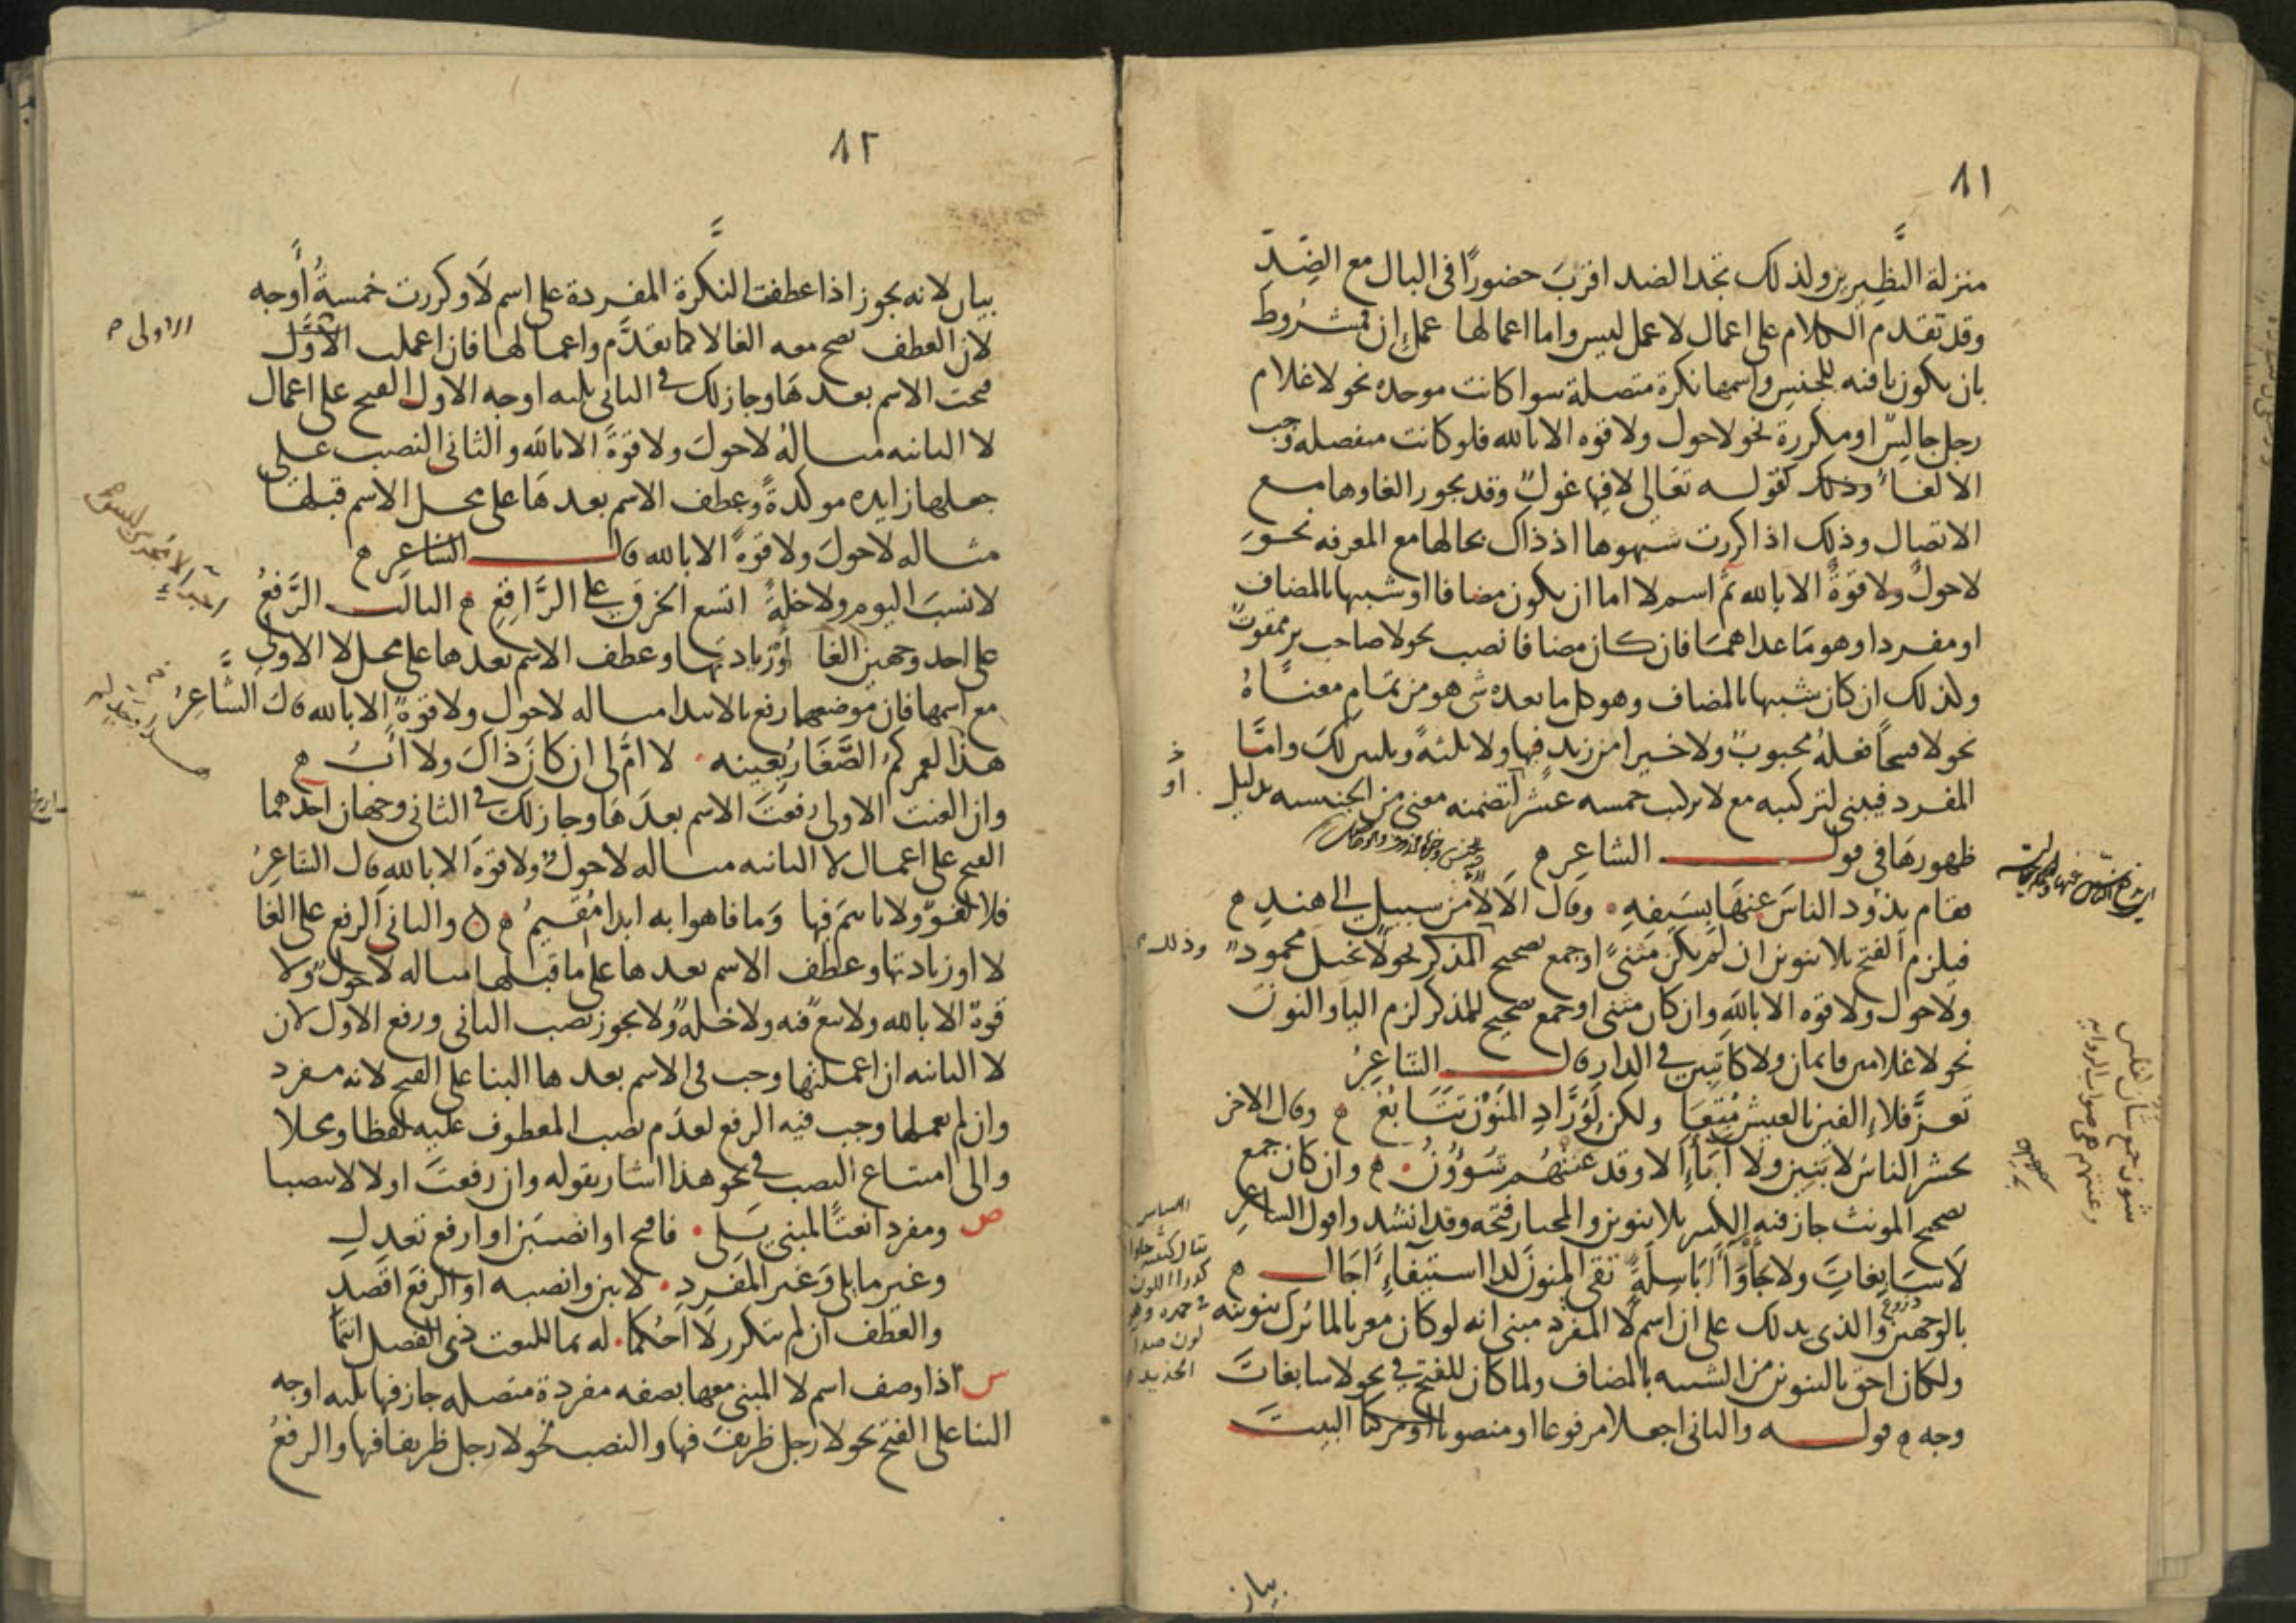 ٨١
منزلة النظيرين ولذلك تجد الضد اقربَ حضورًا فى البال مع الضِدّ
وقد تقدم الكلام على اعمال لا عمل ليس واما اعمالها عمل إن فمشروط
بان يكون نافيه للجنسِ واسمها نكرة متصلة سوا كانت موحده نحو لا غلام
رجل جالِسٌ او مكررة نحو لا حول ولا قوه الا بالله فلو كانت منفصله وجب
الالغاءُ وذلك كقوله تعَالى لا فِيها غولٌ وقد يجوز الغاوها مع
الاتصال وذلِك اذا كررت شبهوها اذ ذاك بحالها مع المعرفه نحوَ
لا حولٌ ولا قوةٌ الا بالله ثمّ اسم لا اما ان يكون مضافا او شبيها بالمضاف
او مفردا وهو مَا عداهمَا فان كان مضافا نصب نحو لا صاحب بر ممقوتٌ
ولذلك ان كان شبيها بالمضاف وهو كل ما بعده شى هو من تمَام معناهُ
نحو لا قبيحًا فعلهُ محبوبٌ ولا خيرا من زيد فيها ولا ثلثةً وثلثين لكَ وامَّا
المفرد فيبنى لتركيبه مع لا تركيب خمسه عشر لتضمنه معنى من الجنسيه بدليل
ظهورهَا فى قول الشاعر
فقام يذود الناسَ عنهَا بسَيفهِ وقال الَا لَا من سبيلٍ الى هندِ
فيلزم الفتح بلا تنوين ان لم يكن مثنىً او جمع تصحيح المذكر نحو لا بخيل محمودٌ
ولا حول ولا قوه الا باللهِ وان كان مثنى او جمع تصحيح لمذكر لزم اليا والنونَ
نحو لا غلامين قائمان ولا كاتبِين فى الدار قال الشاعِرُ
تعزَّ فلا إلفين بالعيش مُتِّعَا ولكن لِوُرَّادِ المنَوْنِ تتَابعُ وقال الاخر
يحشر الناسُ لا بَنِينَ ولا آبَآءَ الا وقد عنتهُم شؤُونُ وان كان جمع
تصحيح المونث جاز فيه الكسر بلا تنوين والمختار فتحه وقد انشد وا قول الشاعرِ
لَا سَابِغاتَِ ولا جأوَآءَ بَاسِلَةً تقى المنونَ لدا استيفآءِ اجَال
بالوجهين والذى يدلك على ان اسم لا المفرد مبنى انه لو كان معربا لما ترك تنوينه
ولكان احق بالتنوين من الشبيه بالمضاف ولما كان للفتح فى نحو لا سابغاتَ
وجه قوله والثانى اجعلا مرفوعا او منصوبا او مركبا البيتَ
وذلك
بيان
٨٢
بيان لانه يجوز اذا عطفت النكرة المفردة على اسم لَا وكررت خمسةُ أوجه
لان العطف يصح معه الغا لا كما تقدَّم واعمالها فان اعملت الاوَّل
فتحت الاسم بعدهَا وجاز لك فى الثانى ثلثه اوجه الاول الفتح على اعمال
لا الثانيه مثالهُ لا حولَ ولا قوةَ الا باللَه والثانى النصب على
جعلها زايده موكدةً وعطف الاسم بعدهَا على محل الاسم قبلها
مثاله لا حولَ ولا قوةً الا بالله قال الشاعِر
لا نسبَ اليوم ولا خلةً اتسع الخرقُ على الرَّاقِعِ الثالث الرَّفعُ
على احد وجهين الغا أو زيادتها وعطف الاسم بعدها على محل لا الاولى
مع اسمها فان موضعهما رفع بالابتدا مثاله لا حول ولا قوةٌ الا بالله قال الشَّاعِرُ
هذا لعمركمُ الصَّغَارُ بِعينه لا امَّ لى ان كانَ ذاكَ ولا ابُ
وان الغيت الاولى رفعتَ الاسم بعدَهَا وجاز لك فى الثانى وجهان احدهما
الفتح على اعمال لا الثانيه مثاله لا حولٌ ولا قوةَ الا باللهِ قال الشاعِرُ
فلا لغوٌ ولا تاثيمَ فيها وَما فاهوا به ابدا مُقيمُ والثانى الرفع على الغا
لا او زيادتها وعطف الاسم بعدها على ما قبلها مثاله لا حولٌ ولا
قوةٌ الا بالله ولا بيعٌ فيه ولا خلةٌ ولا يجوز نصب الثانى ورفع الاول لان
لا الثانيه ان اعملتها وجب فى الاسم بعدها البنا على الفتح لانه مفرد
وان لم تعملها وجب فيه الرفع لعدَم نصب المعطوف عليه لفظا ومحلا
والى امتناع النصب فى نحو هذا اشار بقوله وان رفعتَ اولا لا تنصبا
ص ومفردا نعتًا لمبنىٍ يَلى فافتح او انصبَن او ارفع تعدلِ
وغير ما يلى وَغير المفرد لا تبن وانصبه او الرفعَ اقصدِ
والعَطف ان لم تتكرر لَا احْكما له بما للنعت ذى الفصل انتمَا
س اذا وصف اسم لا المبنى معها بصفه مفردة متصله جاز فيها ثلثه اوجه
البنا على الفتح نحو لا رجل ظريفَ فيها والنصب نحو لا رجل ظريفا فيها والرفعُ
الاولى